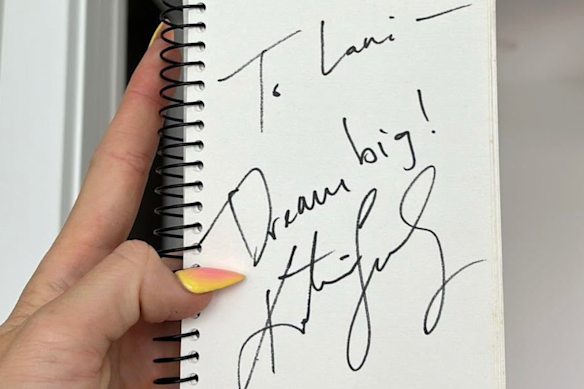 To Lani -
Dream big!